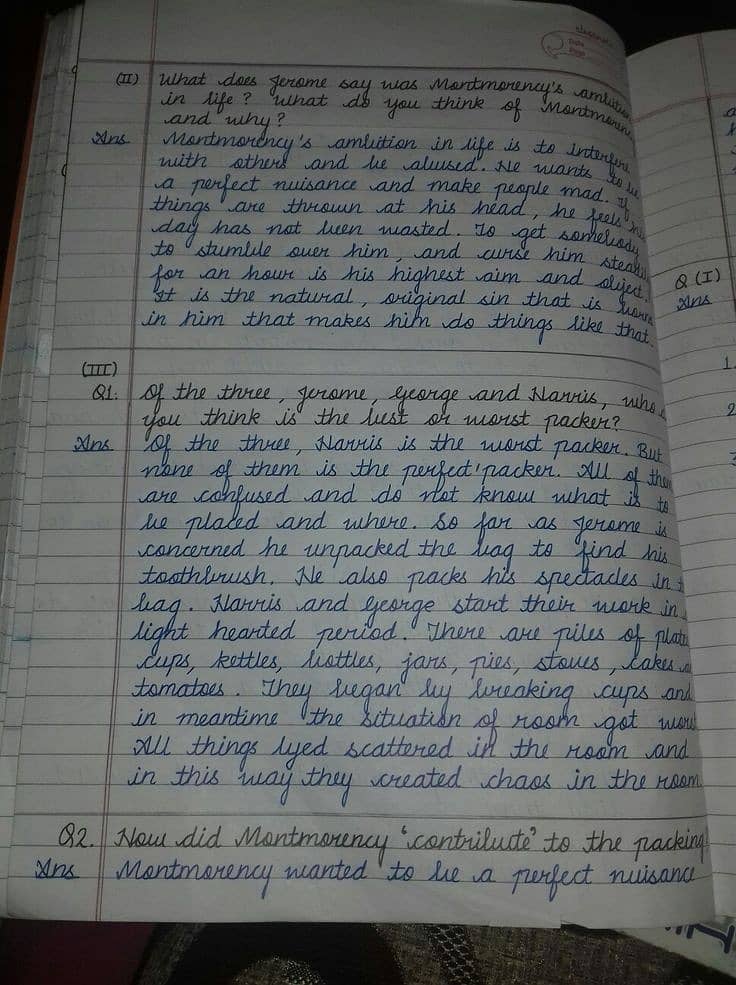 classmate
Date
Page
(II) What does Jerome say was Montmorency's ambition
in life? What do you think of Montmorency
and why?
Ans Montmorency's ambition in life is to interfere
with others and be abused. He wants to be
a perfect nuisance and make people mad. If
things are thrown at his head, he feels his
day has not been wasted. To get somebody
to stumble over him, and curse him steadily
for an hour is his highest aim and object.
It is the natural, original sin that is born
in him that makes him do things like that.
(III)
Q1. Of the three, Jerome, George and Harris, who
you think is the best or worst packer?
Ans Of the three, Harris is the worst packer. But
none of them is the perfect packer. All of them
are confused and do not know what is to
be placed and where. So far as Jerome is
concerned he unpacked the bag to find his
toothbrush. He also packs his spectacles in
bag. Harris and George start their work in
light hearted period. There are piles of
cups, kettles, bottles, jars, pies, stoves, cakes
tomatoes. They began by breaking cups and
in meantime the situation of room got
All things lyed scattered in the room and
in this way they created chaos in the room.
Q2. How did Montmorency 'contribute' to the packing
Ans Montmorency wanted to be a perfect nuisance
Q (I)
Ans
1.
2